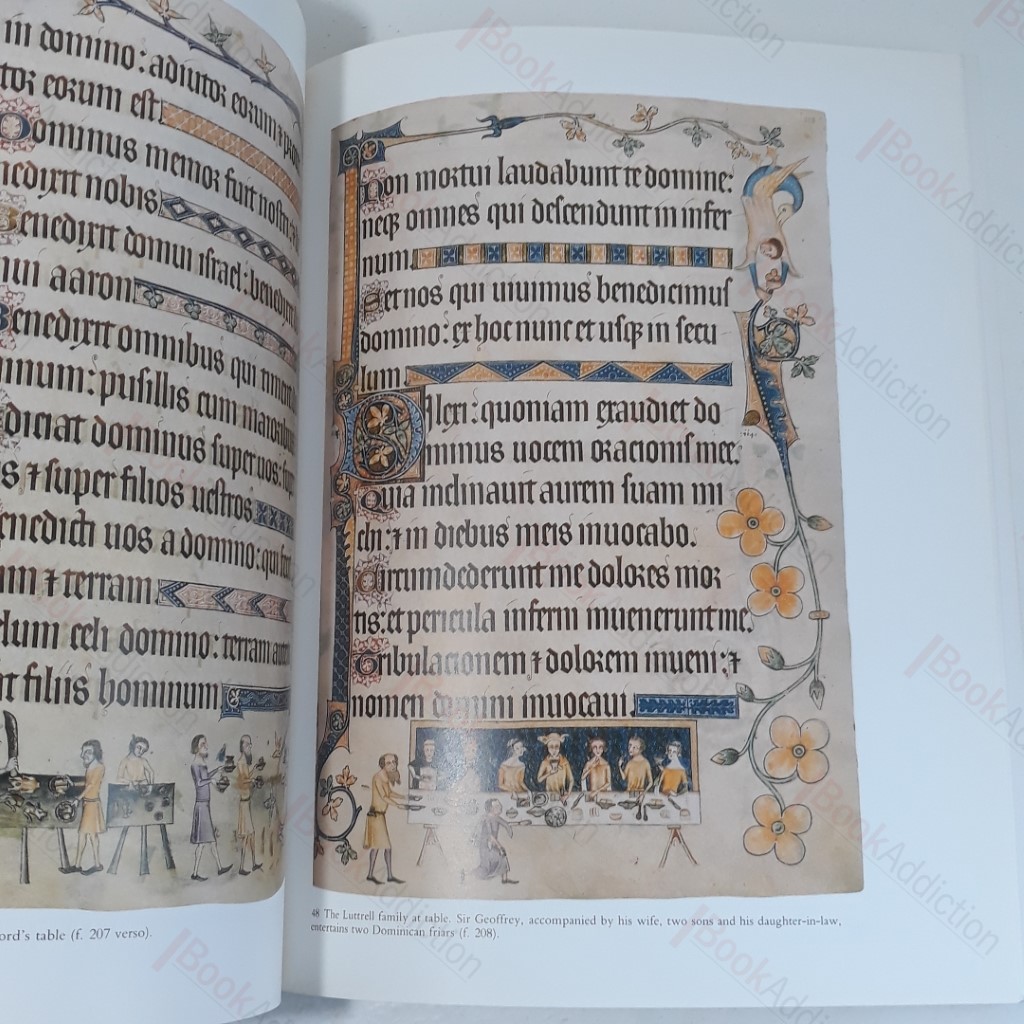 in domino: adiutor eorum
eorum est.
Dominus memor fuit
nobis
Benedixit domui israel:
aaron.
Benedixit omnibus qui
pusillis cum maioribus
dominus super uos:
⁊ super filios uestros.
uos a domino: qui
⁊ terram
celi domino: terram
filiis hominum
ord's table (f. 207 verso).
Non mortui laudabunt te domine:
neqꝫ omnes qui descendunt in infer
num.
Set nos qui uiuimus benedicimus
domino: ex hoc nunc et usqꝫ in secu
lum.
Dilexi: quoniam exaudiet do
minus uocem oracionis mee.
Quia inclinauit aurem suam mi
chi: ⁊ in diebus meis inuocabo.
Circumdederunt me dolores mor
tis: et pericula inferni inuenerunt me.
Tribulacionem ⁊ dolorem inueni: ⁊
nomen domini inuocaui.
48 The Luttrell family at table. Sir Geoffrey, accompanied by his wife, two sons and his daughter-in-law,
entertains two Dominican friars (f. 208).
BookAddiction